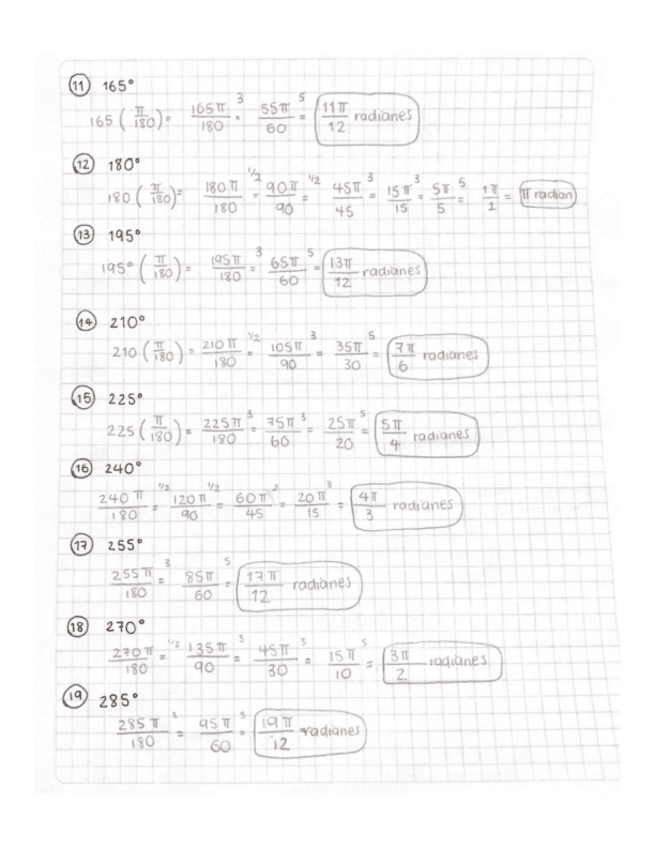 11 165°
165 (π/180) = 165π/180 ³= 55π/60 ⁵= 11π/12 radianes
12 180°
180 (π/180) = 180π/180 ¹/²= 90π/90 ¹/²= 45π/45 ³= 15π/15 ³= 5π/5 ⁵= 1π/1 = π radian
13 195°
195° (π/180) = 195π/180 ³= 65π/60 ⁵= 13π/12 radianes
14 210°
210 (π/180) = 210π/180 ¹/²= 105π/90 ³= 35π/30 ⁵= 7π/6 radianes
15 225°
225 (π/180) = 225π/180 ³= 75π/60 ³= 25π/20 ⁵= 5π/4 radianes
16 240°
240π/180 ¹/²= 120π/90 ¹/²= 60π/45 = 20π/15 ³= 4π/3 radianes
17 255°
255π/180 ³= 85π/60 ⁵= 17π/12 radianes
18 270°
270π/180 ¹/²= 135π/90 ³= 45π/30 ³= 15π/10 ⁵= 3π/2 radianes
19 285°
285π/180 = 95π/60 ⁵= 19π/12 radianes